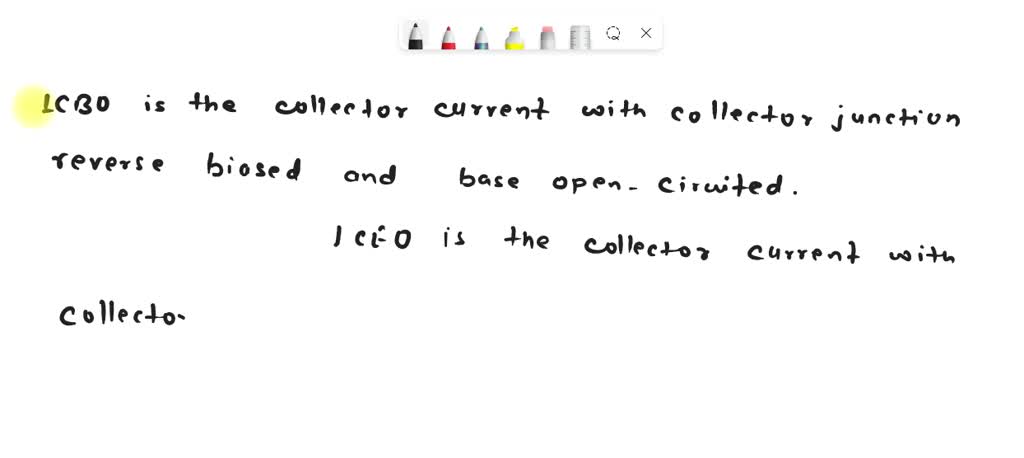 ICBO is the collector current with collector junction
reverse biosed and base open-circuited.
ICEO is the collector current with
collector